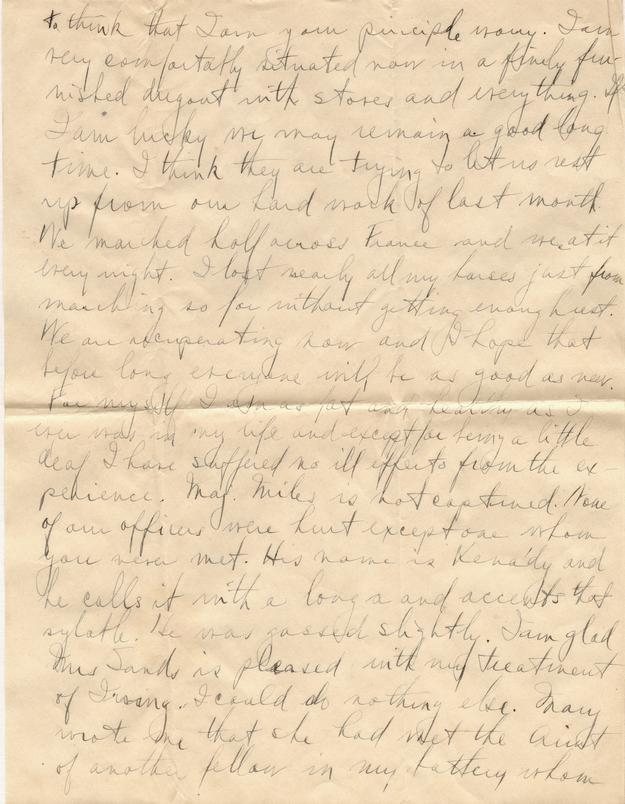 to think that I am your principle worry. I am
very comfortably situated now in a finely fur-
nished dugout with stoves and everything. If
I am lucky we may remain a good long
time. I think they are trying to let us rest
up from our hard work of last month
We marched half across France and we at it
every night. I lost nearly all my horses just from
marching so far without getting enough rest.
We are recuperating now and I hope that
before long everyone will be as good as new.
For myself I am as fat and healthy as I
ever was in my life and except for being a little
deaf I have suffered no ill effects from the ex-
perience. Maj. Miles is not captured. None
of our officers were hurt except one whom
you never met. His name is Kenady and
he calls it with a long a and accents that
sylable. He was gassed slightly. I am glad
Mrs Sands is pleased with my treatment
of Irving. I could do nothing else. Mary
wrote me that she had met the Aunt
of another fellow in my battery whom